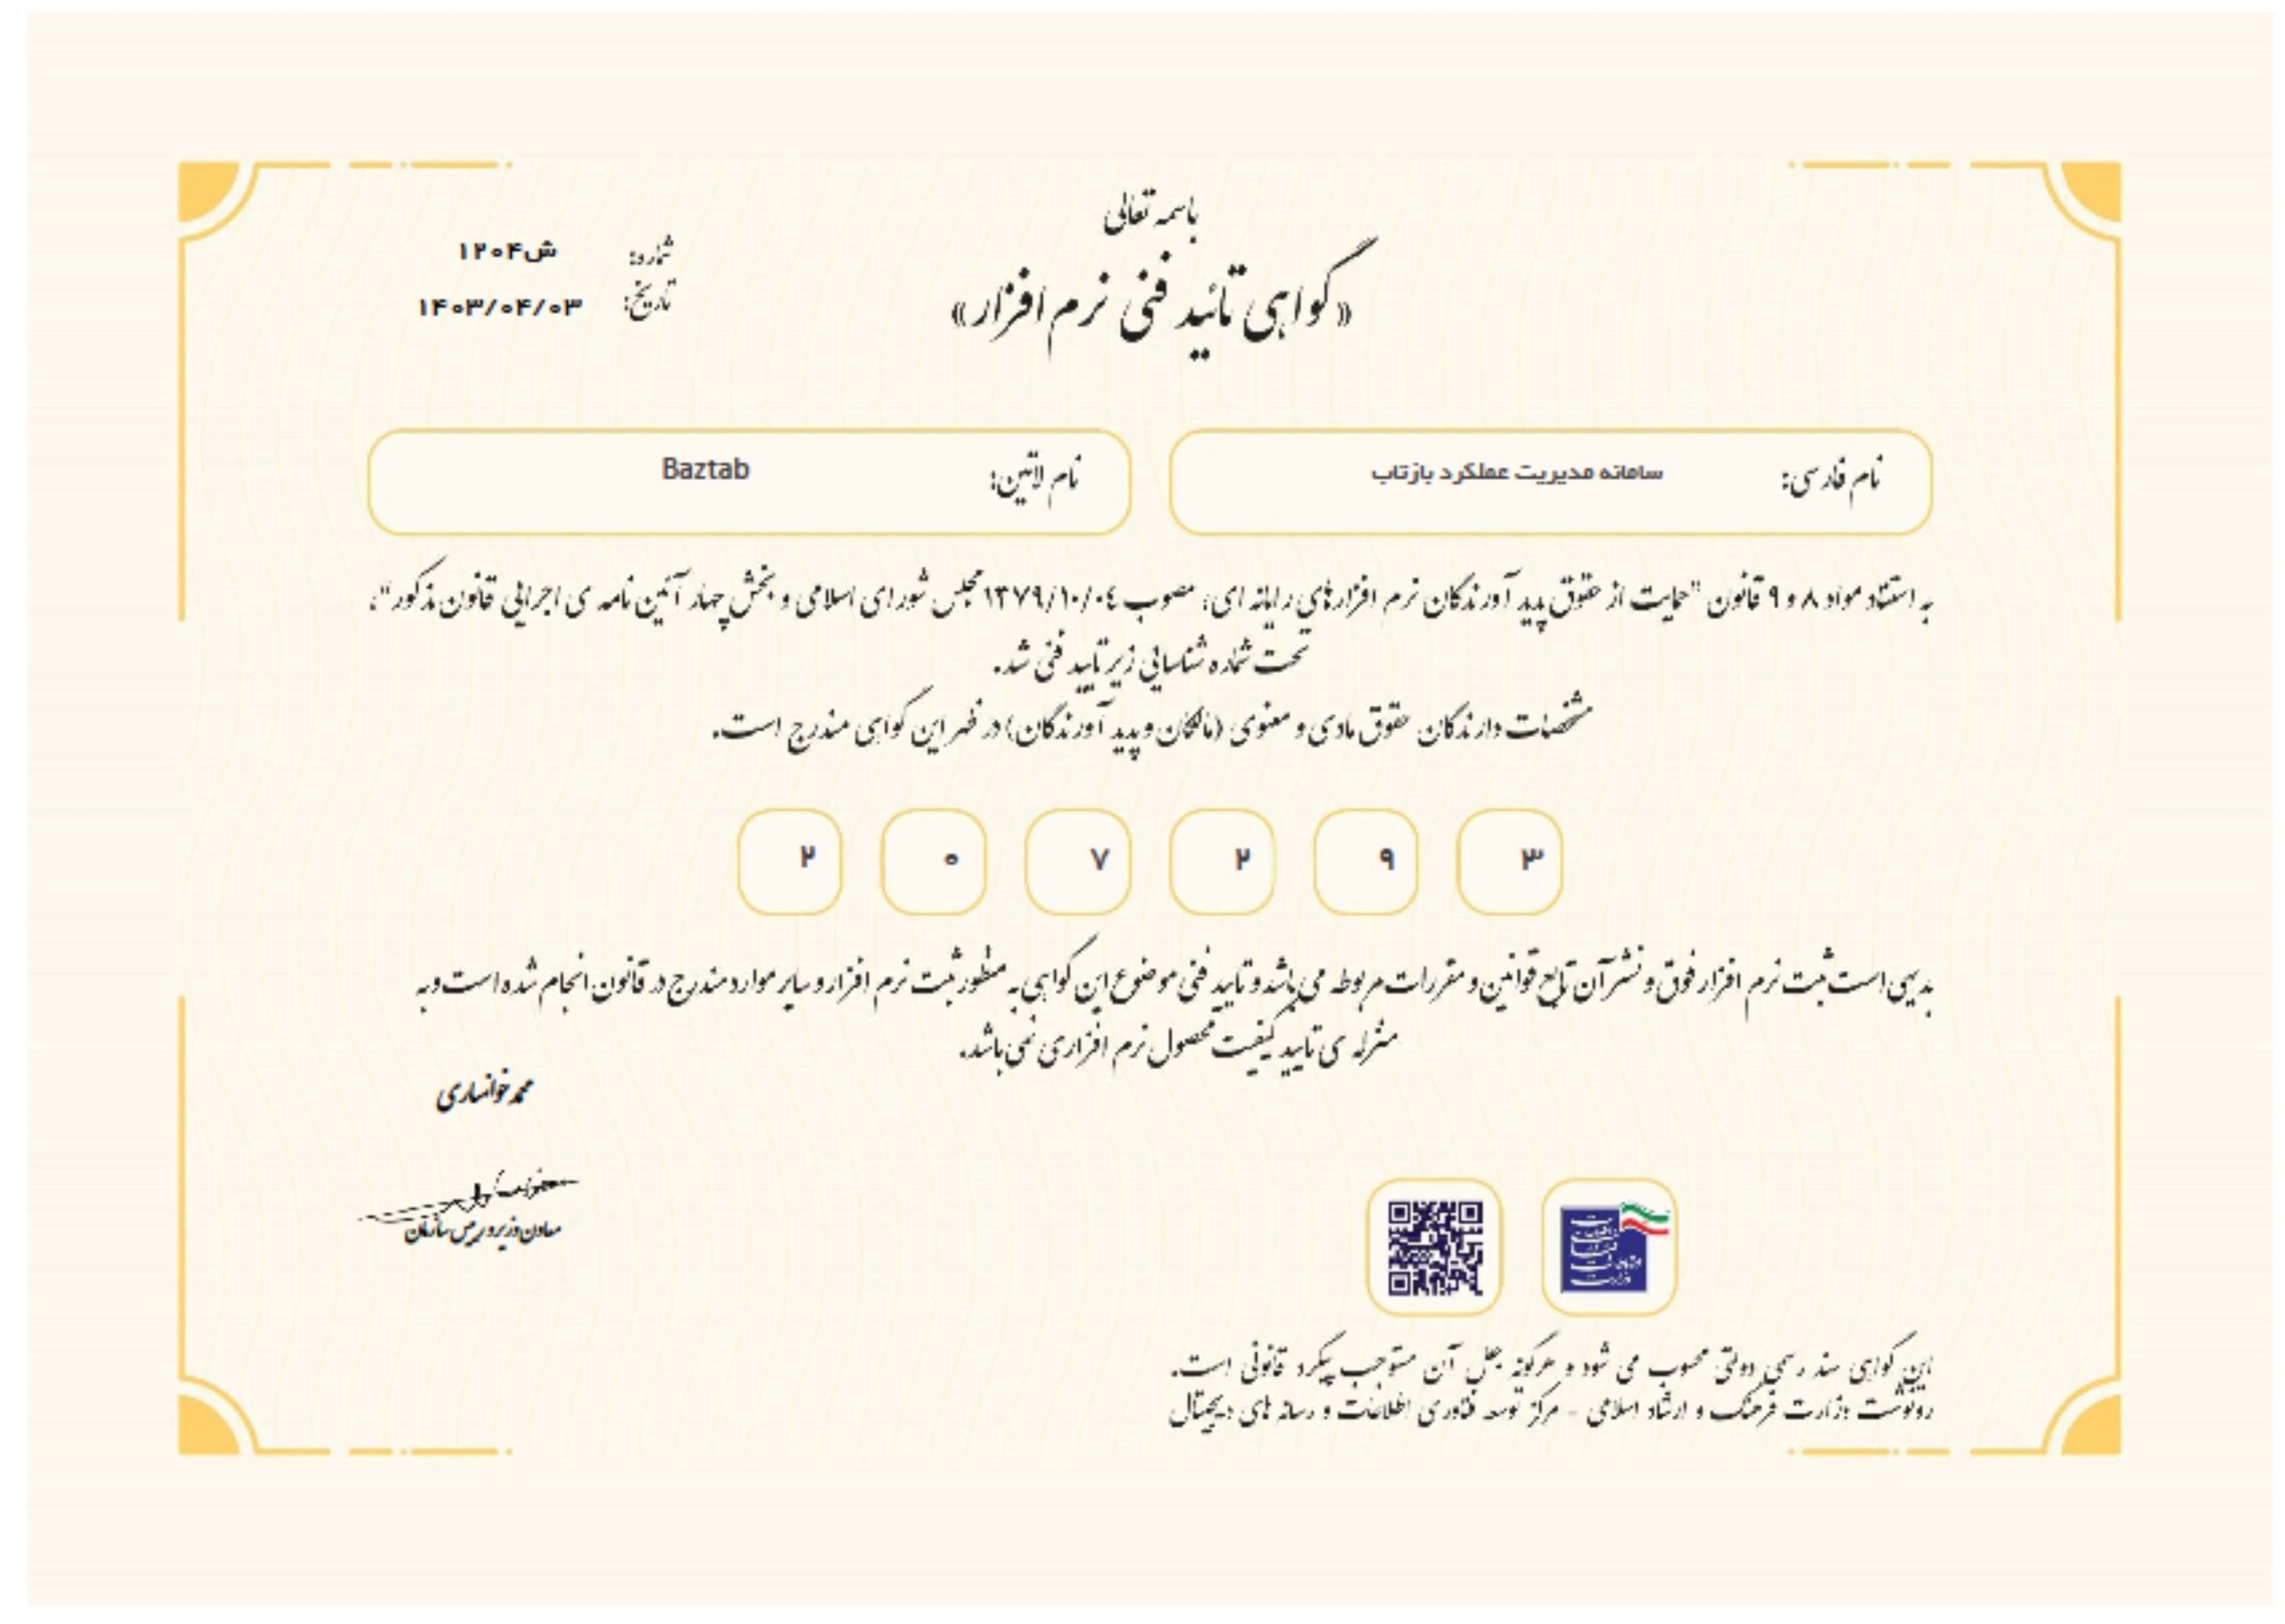 باسمه تعالی
«گواهی تائید فنی نرم افزار»
شماره: ش۱۲۰۴
تاریخ: ۱۴۰۳/۰۴/۰۳
نام فارسی: سامانه مدیریت عملکرد بازتاب
نام لاتین: Baztab
به استناد مواد ۸ و ۹ قانون "حمایت از حقوق پدید آورندگان نرم افزارهای رایانه ای، مصوب ۱۳۷۹/۱۰/۰٤ مجلس شورای اسلامی و بخش چهار آئین نامه ی اجرایی قانون مذکور"،
تحت شماره شناسایی زیر تایید فنی شد.
مشخصات دارندگان حقوق مادی و معنوی (مالکان و پدید آورندگان) در ظهر این گواهی مندرج است.
۲ ۰ ۷ ۲ ۹ ۳
بدیهی است ثبت نرم افزار فوق و نشر آن تابع قوانین و مقررات مربوطه می باشد و تایید فنی موضوع این گواهی به منظور ثبت نرم افزار و سایر موارد مندرج در قانون انجام شده است و به
منزله ی تایید کیفیت محصول نرم افزاری نمی باشد.
محمد خوانساری
معاون وزیر و رییس سازمان
این گواهی سند رسمی دولتی محسوب می شود و هرگونه جعل آن مستوجب پیگرد قانونی است.
رونوشت وزارت فرهنگ و ارشاد اسلامی - مرکز توسعه فناوری اطلاعات و رسانه های دیجیتال